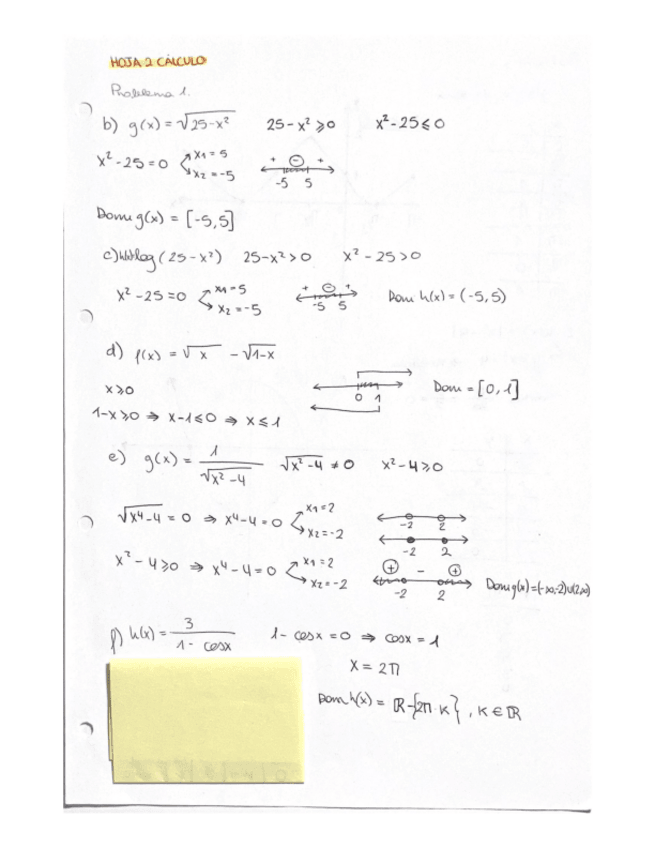 HOJA 2 CÁLCULO
Problema 1.
b) g(x) = √25-x² 25-x² ≥0 x²-25≤0
x²-25=0 x1=5 x2=-5 + - + -5 5
Dom g(x) = [-5,5]
c) log(25-x²) 25-x²>0 x²-25>0
x²-25=0 x1=5 x2=-5 + - + -5 5 Dom h(x)=(-5,5)
d) f(x) = √x - √1-x
x≥0 0 1 Dom = [0,1]
1-x≥0 ⇒ x-1≤0 ⇒ x≤1
e) g(x) = 1/√x²-4 √x²-4 ≠0 x²-4≥0
√x⁴-4 = 0 ⇒ x⁴-4=0 x1=2 x2=-2 -2 2
-2 2
x²-4≥0 ⇒ x⁴-4=0 x1=2 x2=-2 + - + -2 2 Dom g(x)=(-∞,-2)∪(2,∞)
f) h(x) = 3/1-cosx 1-cosx=0 ⇒ cosx=1
x=2π
Dom h(x) = ℝ-{2π·K}, K∈ℝ